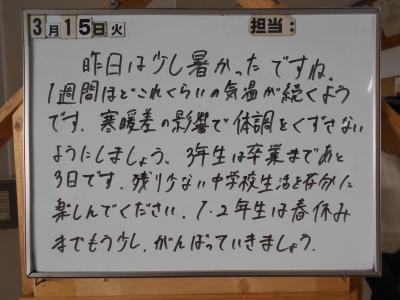 3月15日火 担当:
昨日は少し暑かったですね。
1週間ほどこれくらいの気温が続くよう
です。寒暖差の影響で体調をくずさない
ようにしましょう。3年生は卒業まであと
3日です。残り少ない中学校生活を存分に
楽しんでください。1・2年生は春休み
までもう少し、がんばっていきましょう。